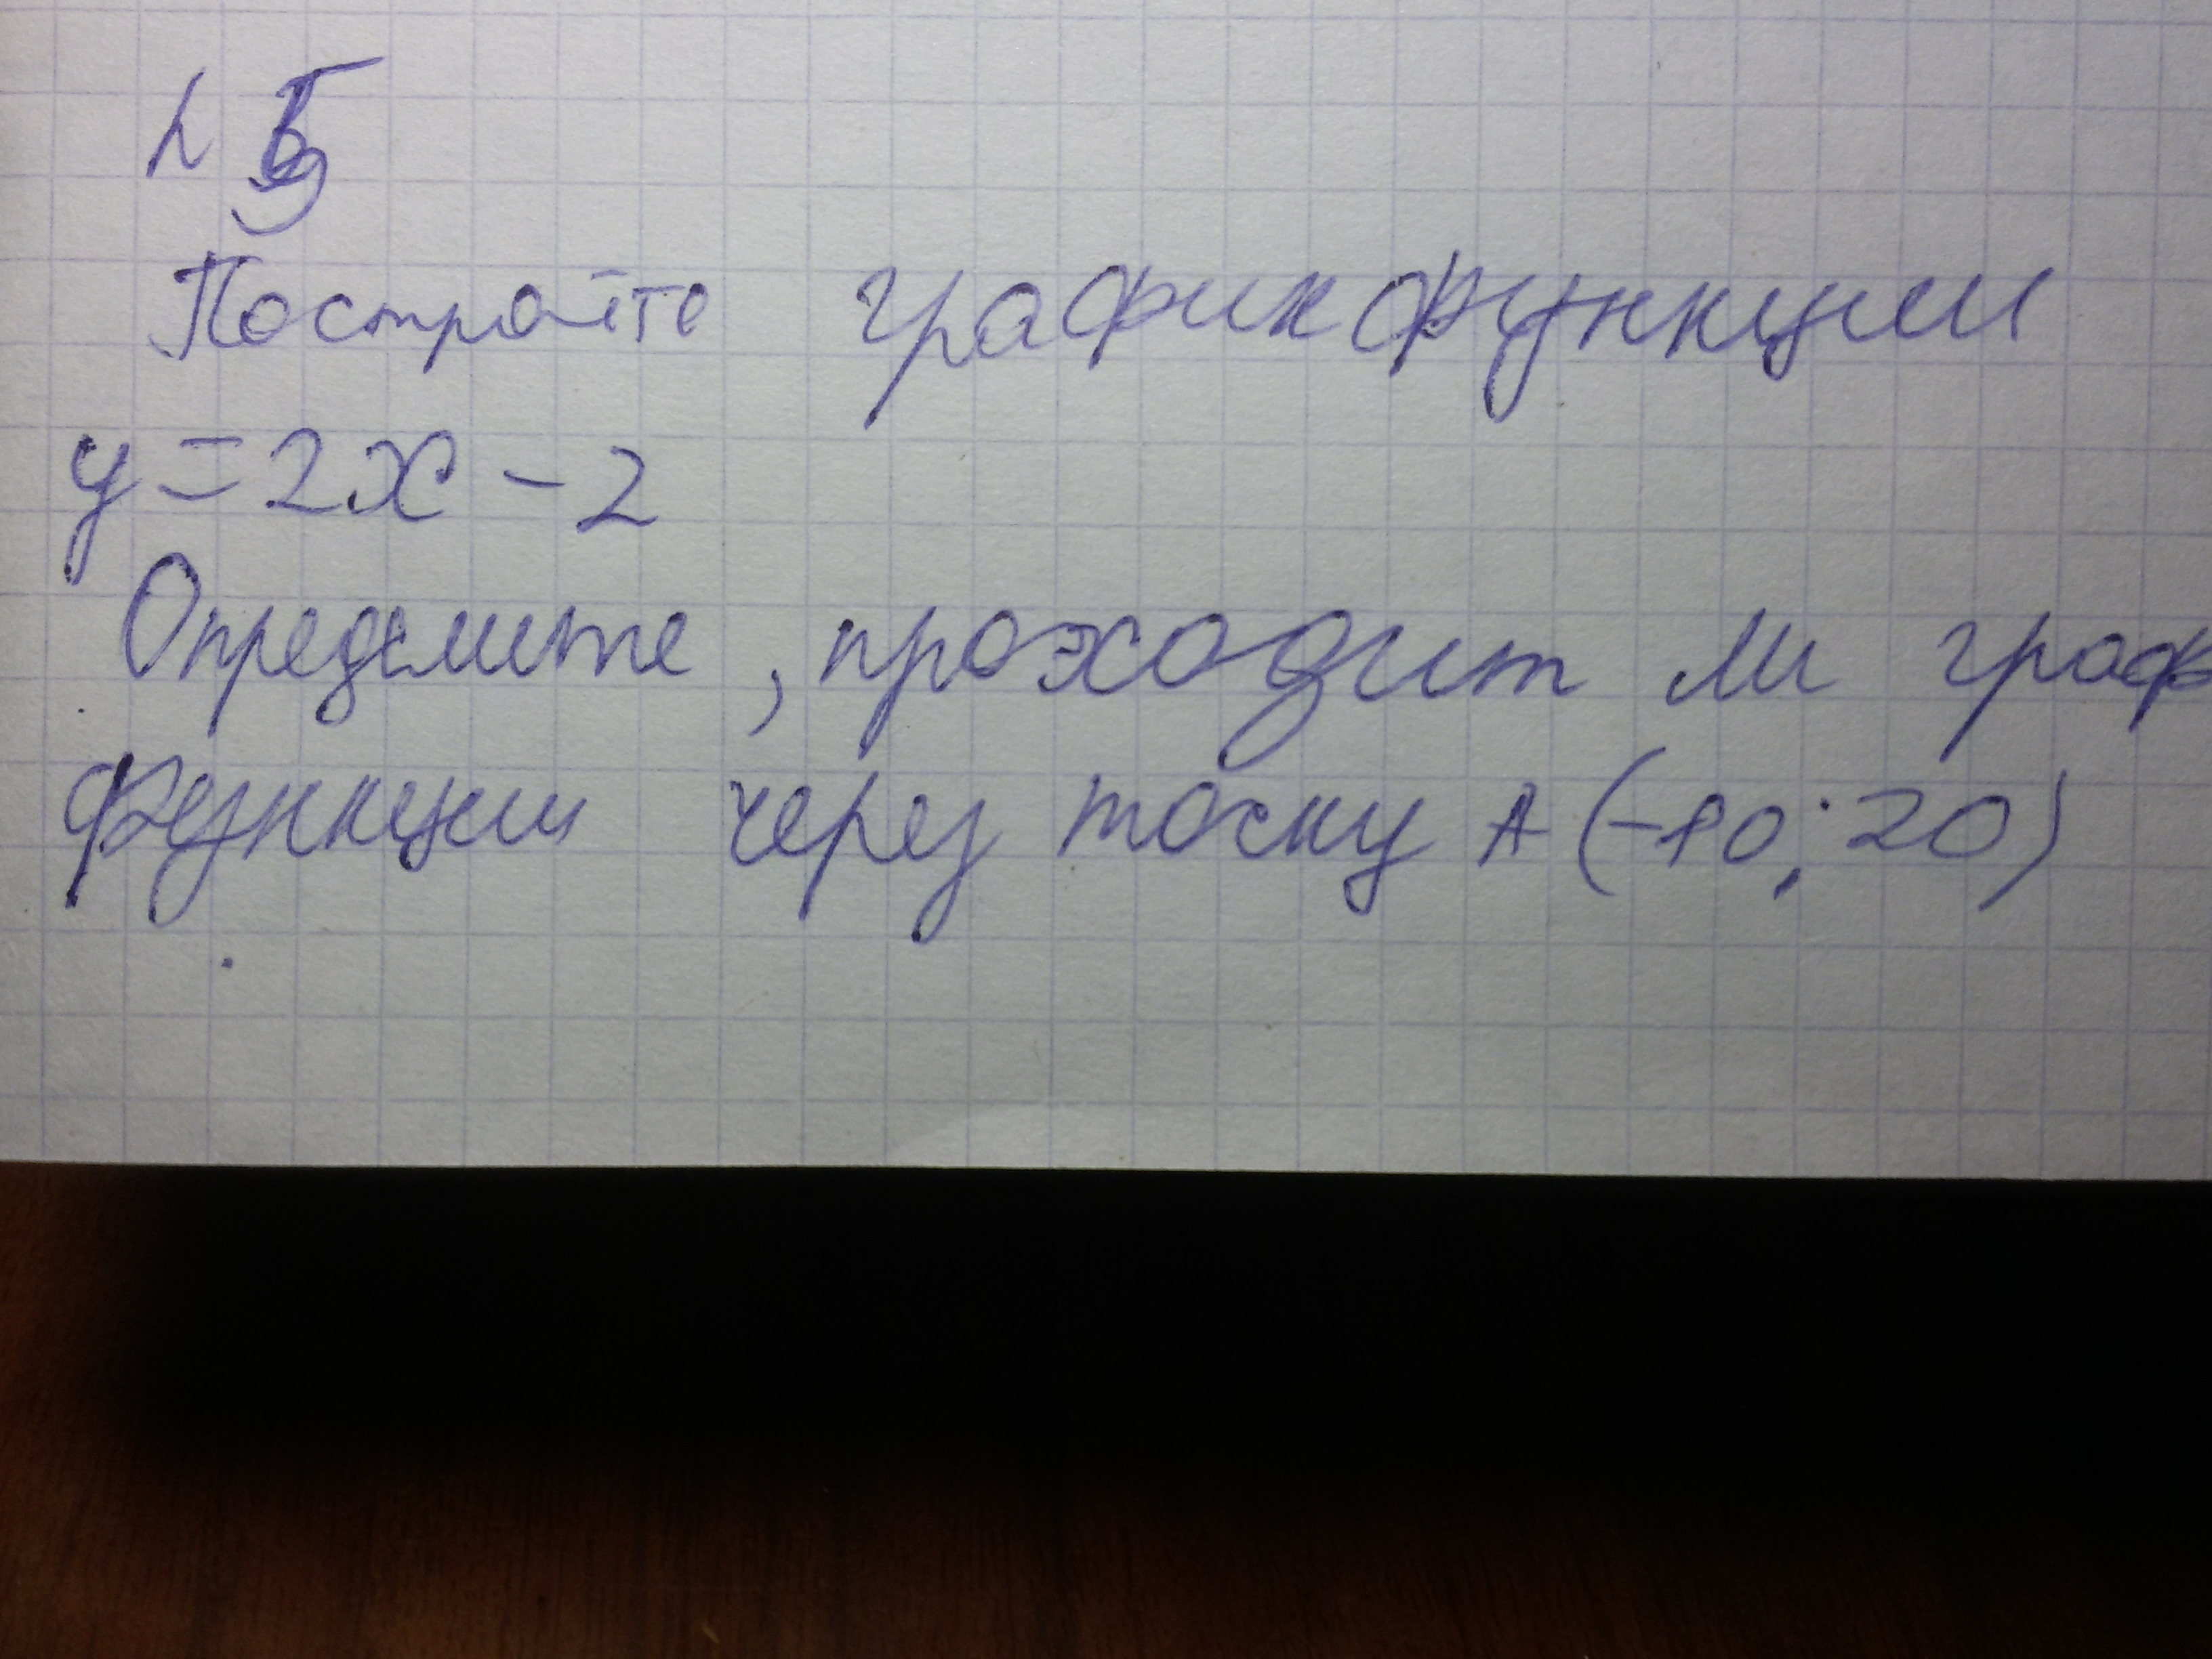 Постройте график функции
y = 2x - 2
Определите, проходит ли граф
функции через точку A (-10; 20)